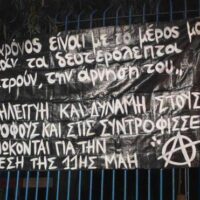 χρόνος είναι με το μέρος μα
ραν τα δευτερόλεπτα
τρούν, την άρνηση του,,
ΗΛΕΓΓΥΗ ΚΑΙ ΔΥΝΑΜΗ ΣΤΟΥΣ
ΡΟΦΟΥΣ ΚΑΙ ΣΤΙΣ ΣΥΝΤΡΟΦΙΣΣΕ
ΩΚΟΝΤΑΙ ΓΙΑ ΤΗΝ
ΕΣΗ ΤΗΣ 11ΗΣ ΜΑΗ